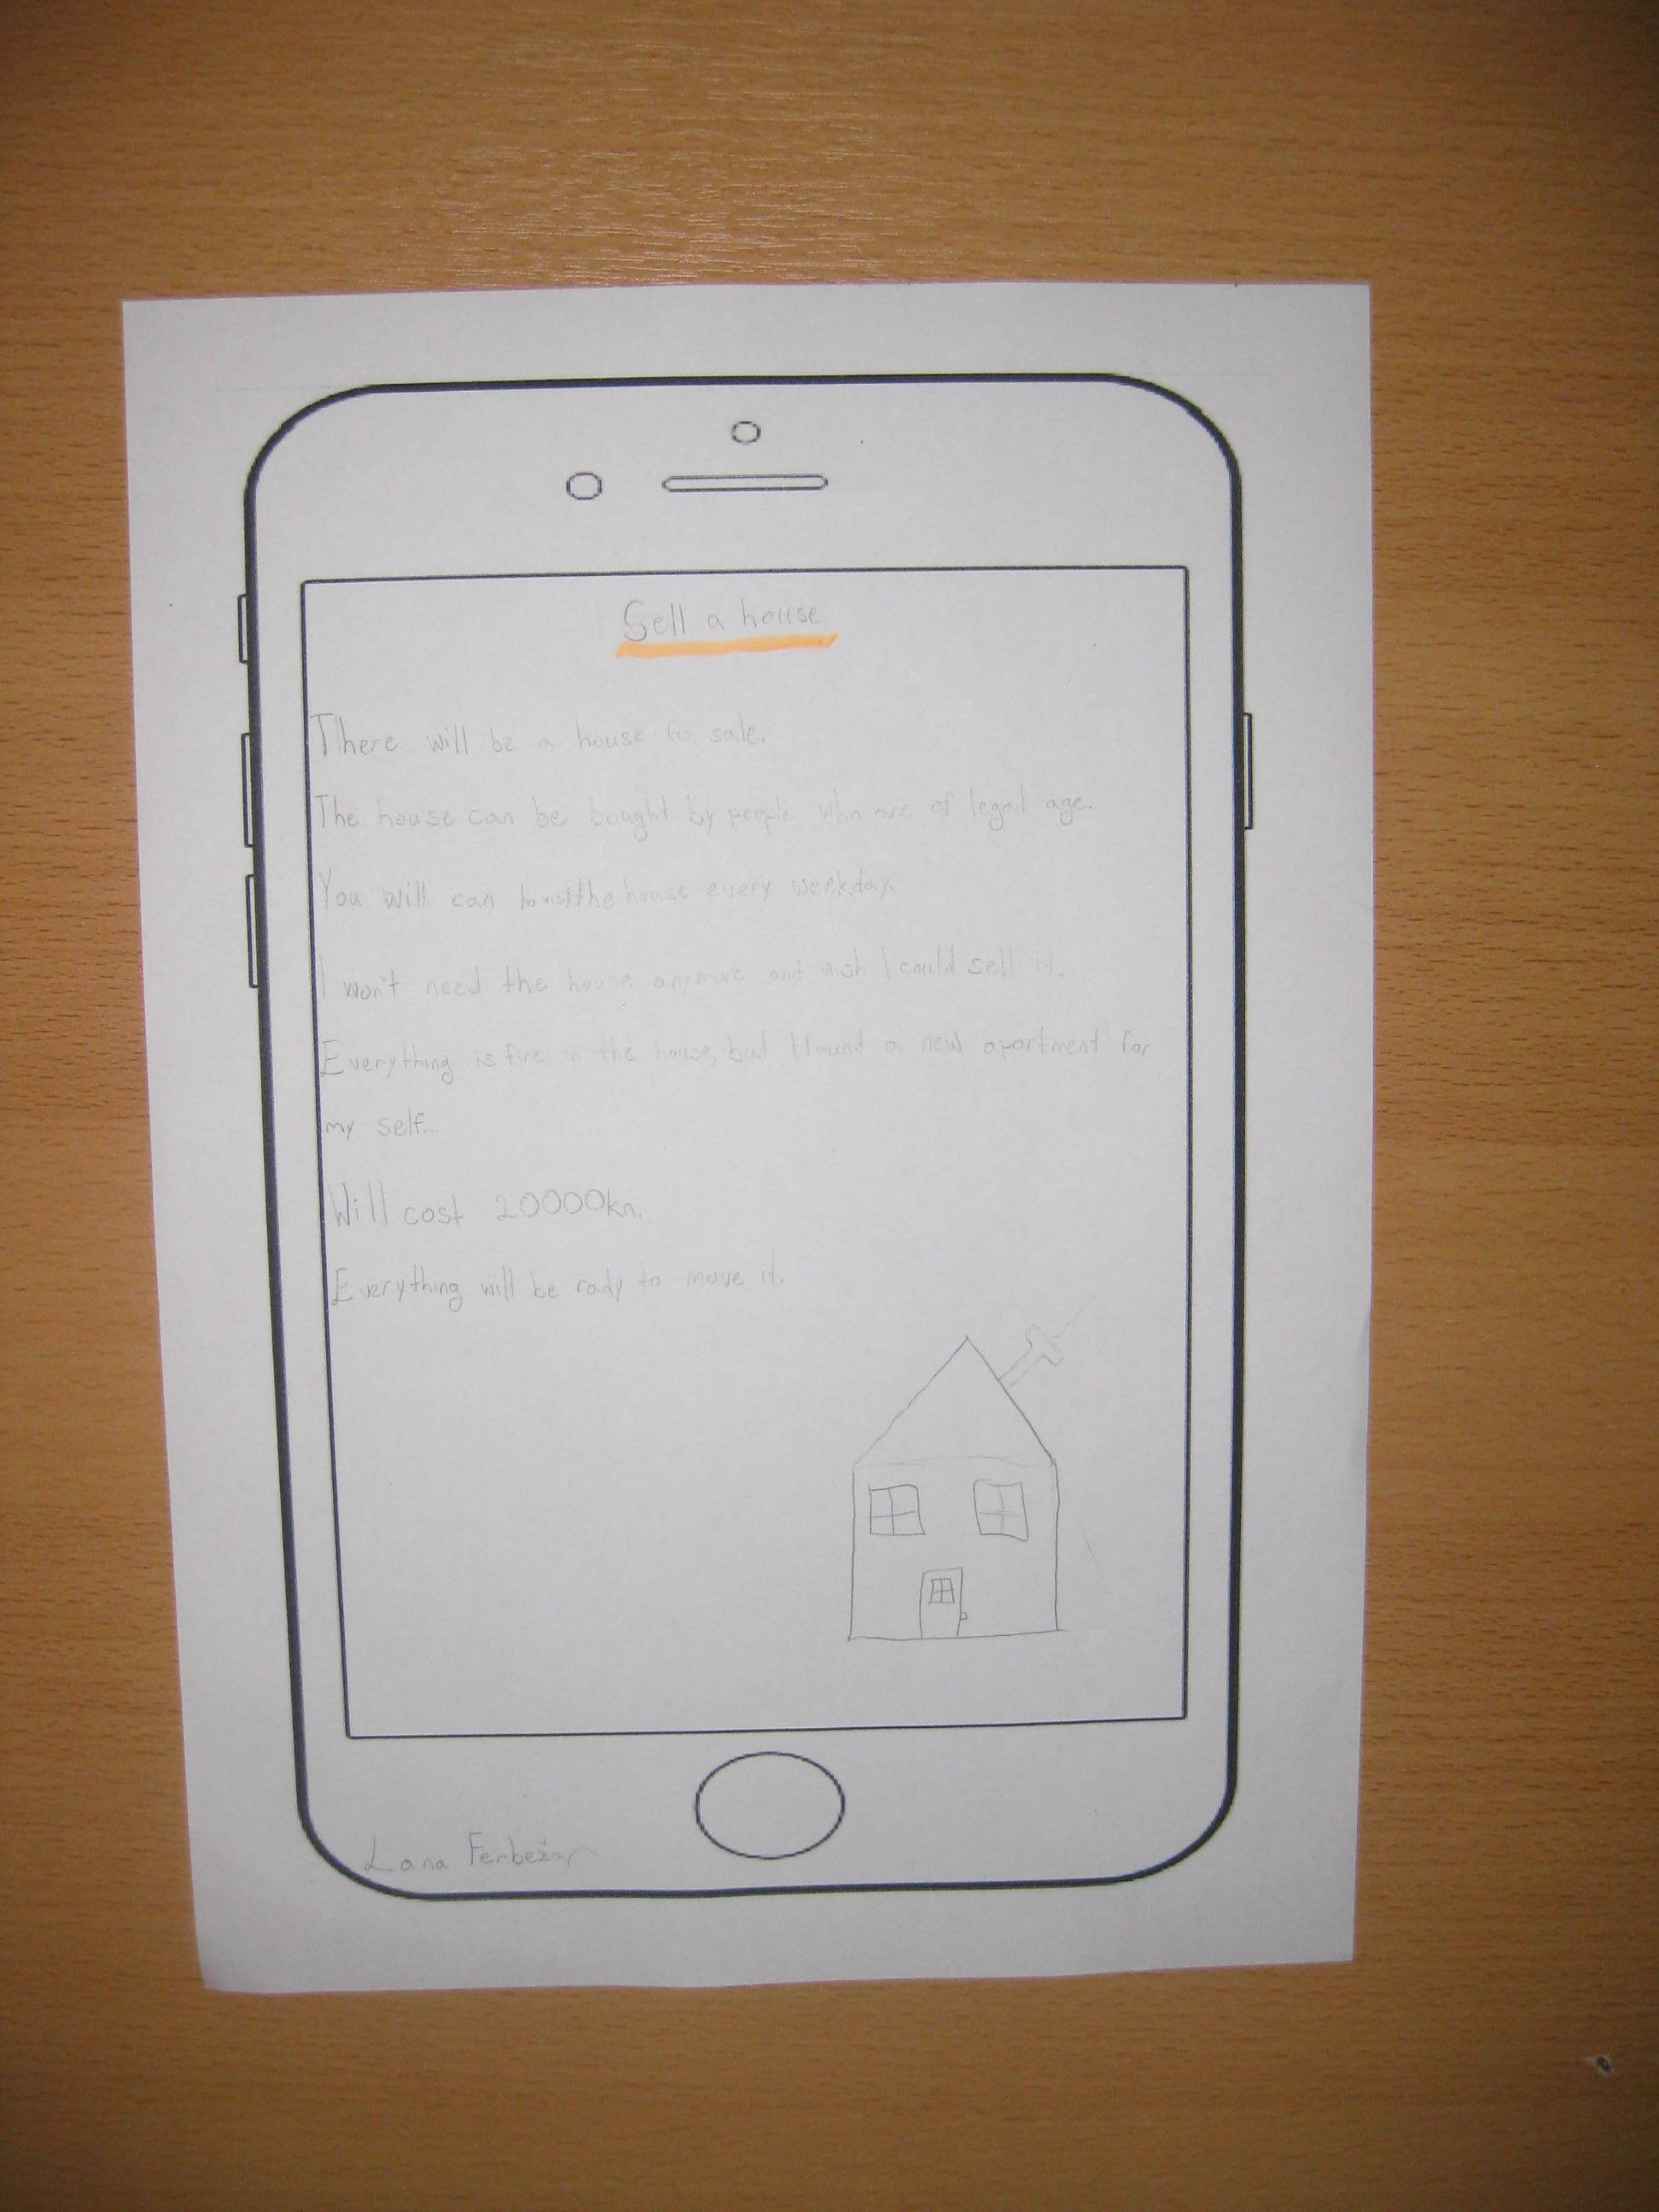 Sell a house
There will be a house to sale.
The house can be bought by people who are of legal age.
You will can to visit the house every workday.
I won't need the house anymore and wish I could sell it.
Everything is fine in the house, but I found a new apartment for
my self...
Will cost 20000kn.
Everything will be rady to move it.
Lana Ferbežar